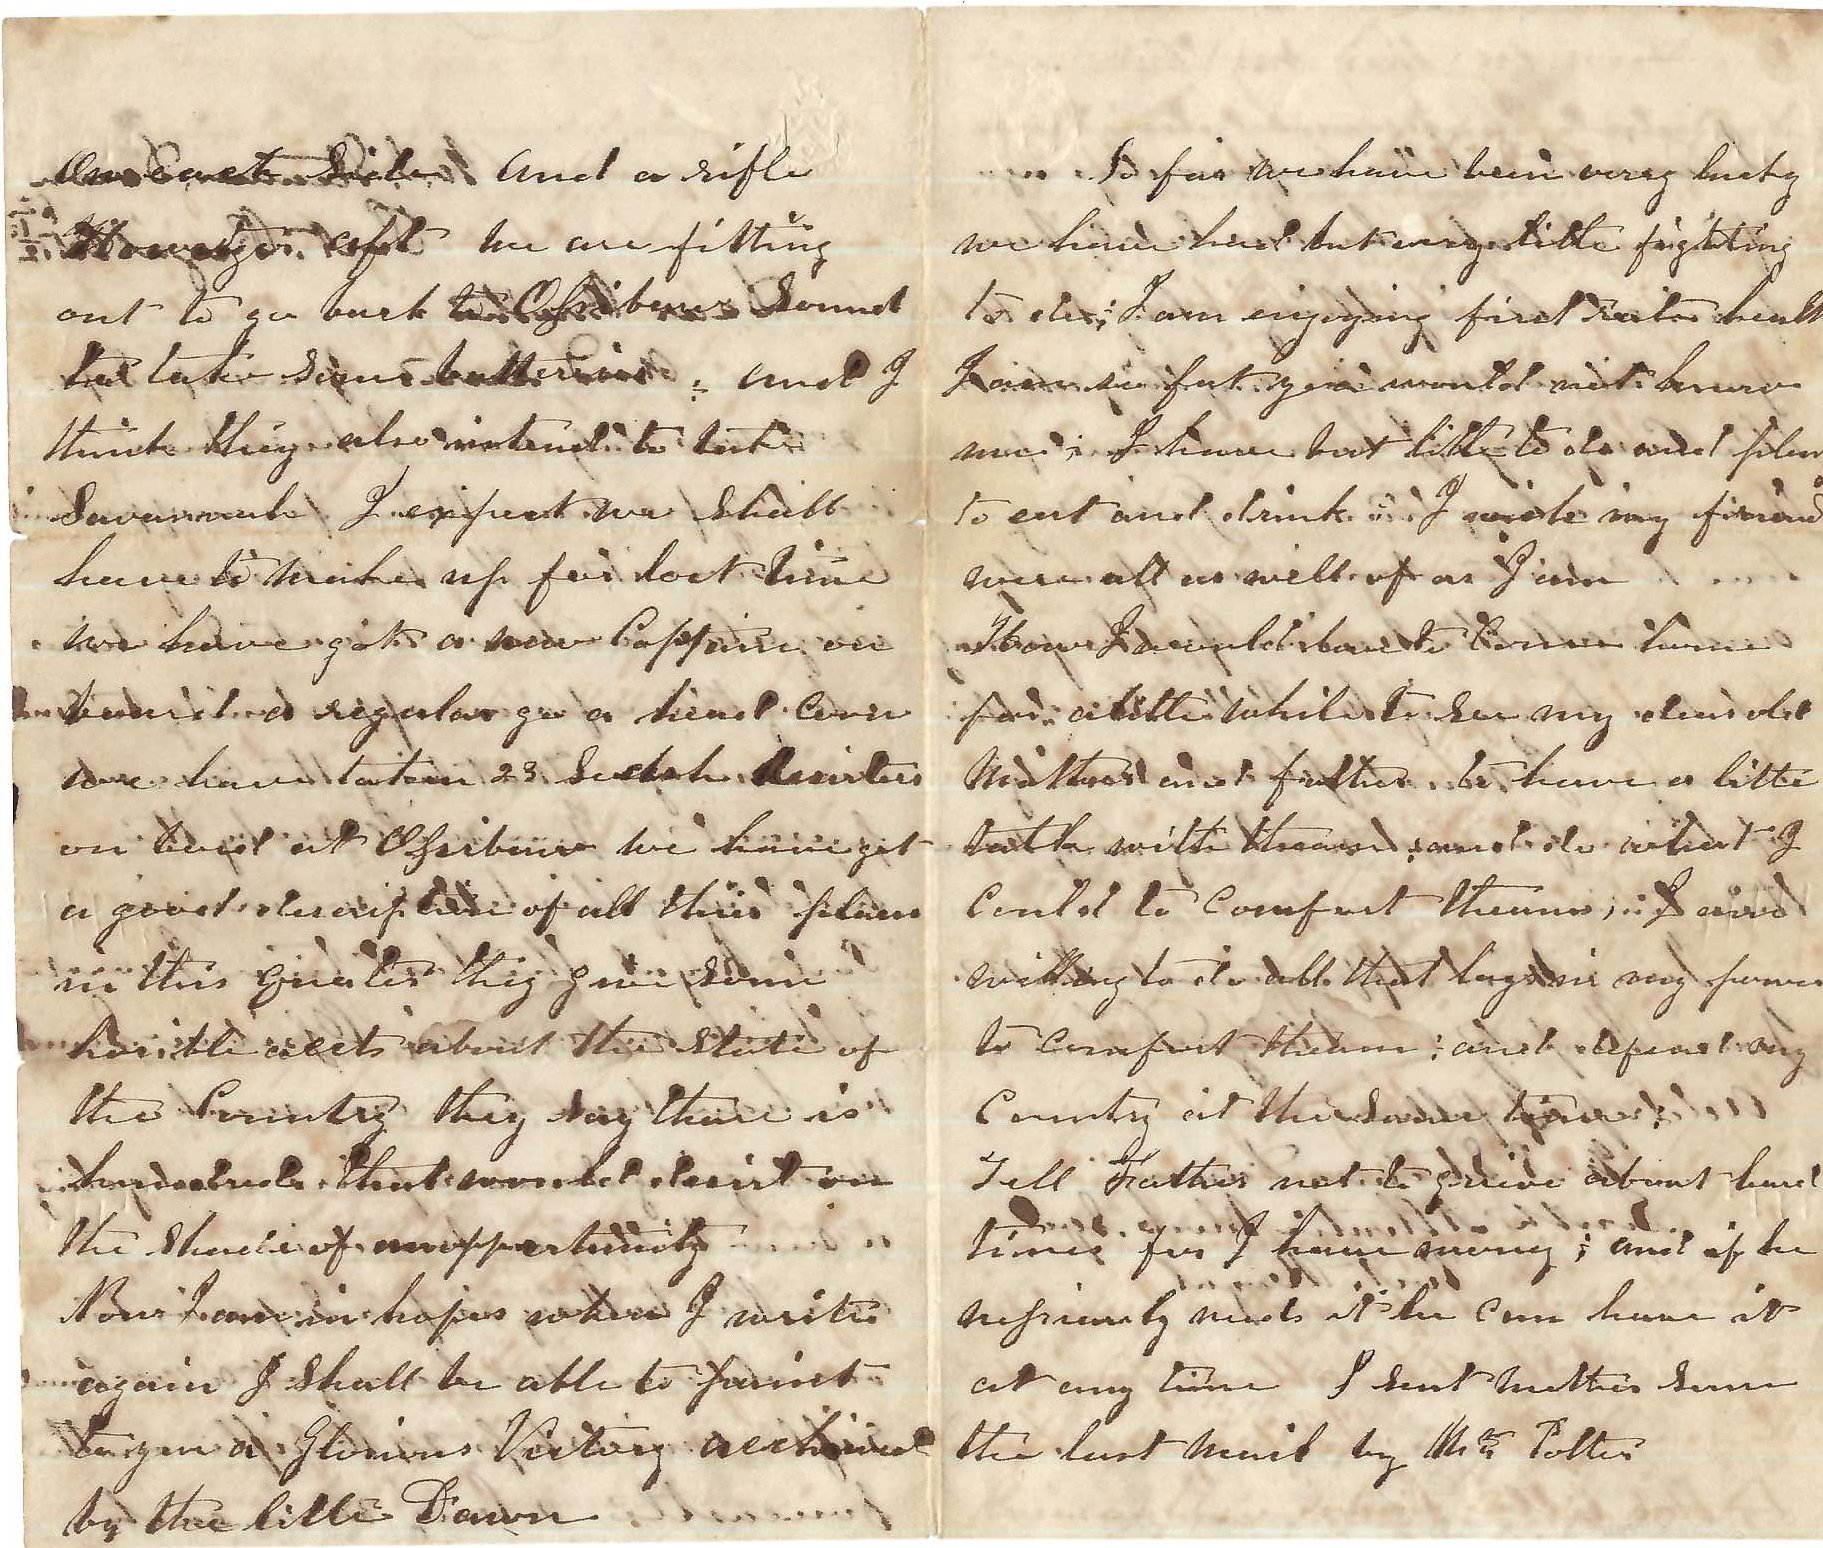 On each Side and a rifle
Howetzer aft we are fitting
out to go back to Ossibaw Sound
to take some batteries ; and I
think they also intend to take
Savannah I expect we Shall
have to make up for lost time
we have got a new Cappian on
board a regular go a head Cove
we have taken 23 Secesh deserters
on board at Ossibaw we have got
a good description of all thier plans
in this Quater they give some
horible acts about the State of
the Country they say there is
hundreds that would desirt on
the Shade of an oppertunity
Now I am in hopes when I write
again I Shall be able to paint
to you a Glorious Victory acchived
by the little Dawn
So far we have been very lucky
we have had but very little fighting
to do ; I am enjoying first rate healt
I am so fat you would not know
me ; I have but little to do and plen
to eat and drink I wish my friend
were all as well of as I am
How I would love to Come home
for a little while to see my dear old
Mother and father to have a little
talk with theam ; and do what I
Could to Comfort theam ; I am
willing to do all that lays in my power
to Comfort theam ; and defend my
Country at the same time ;
Tell Father not to grieve about hard
times for I have money ; and if he
nessicarly needs it he can have it
at any time I sent Mother some
the last Mail by Mrs Potter